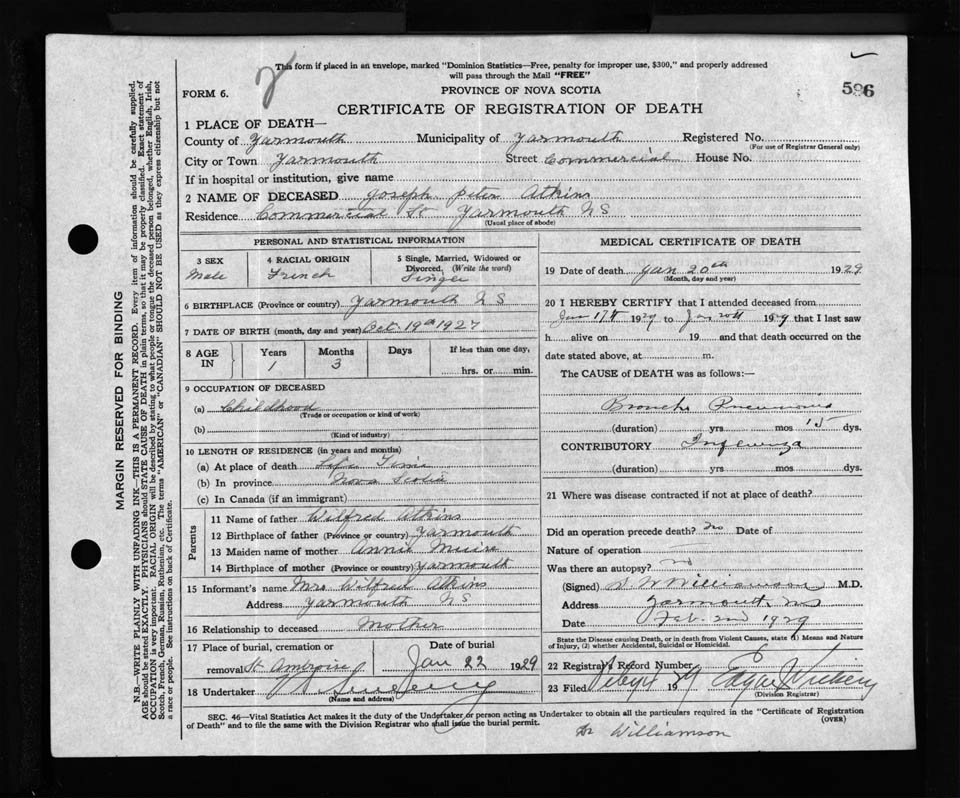 This form if placed in an envelope, marked "Dominion Statistics—Free, penalty for improper use, $300," and properly addressed
will pass through the Mail "FREE"
FORM 6.
PROVINCE OF NOVA SCOTIA
586
CERTIFICATE OF REGISTRATION OF DEATH
1 PLACE OF DEATH—
County of Yarmouth Municipality of Yarmouth Registered No.
(For use of Registrar General only)
City or Town Yarmouth Street Commercial House No.
If in hospital or institution, give name
2 NAME OF DECEASED Joseph Peter Atkins
Residence Commercial St Yarmouth N S
(Usual place of abode)
PERSONAL AND STATISTICAL INFORMATION
3 SEX
Male
4 RACIAL ORIGIN
French
5 Single, Married, Widowed or
Divorced. (Write the word)
Single
6 BIRTHPLACE (Province or country) Yarmouth N S
7 DATE OF BIRTH (month, day and year) Oct. 19th 1927
8 AGE
IN
Years
1
Months
3
Days
If less than one day,
hrs. or min.
9 OCCUPATION OF DECEASED
(a) Childhood
(Trade or occupation or kind of work)
(b)
(Kind of industry)
10 LENGTH OF RESIDENCE (in years and months)
(a) At place of death Life Time
(b) In province Nova Scotia
(c) In Canada (if an immigrant)
Parents
11 Name of father Wilfred Atkins
12 Birthplace of father (Province or country) Yarmouth
13 Maiden name of mother Annie Muise
14 Birthplace of mother (Province or country) Yarmouth
15 Informant's name Mrs Wilfred Atkins
Address Yarmouth N S
16 Relationship to deceased Mother
17 Place of burial, cremation or
removal St Ambroise
Date of burial
Jan 22 1929
18 Undertaker
(Name and address)
MEDICAL CERTIFICATE OF DEATH
19 Date of death Jan 20th 1929
(Month, day and year)
20 I HEREBY CERTIFY that I attended deceased from
Jan 17th 1929 to Jan 20th 1929 that I last saw
h alive on 19 and that death occurred on the
date stated above, at m.
The CAUSE of DEATH was as follows:—
Broncho Pneumonia
(duration) yrs. mos 15 dys.
CONTRIBUTORY Influenza
(duration) yrs. mos dys.
21 Where was disease contracted if not at place of death?
Did an operation precede death? No Date of
Nature of operation
Was there an autopsy? no
(Signed) Williamson M.D.
Address Yarmouth, N S
Date Feb. 2nd 1929
State the Disease causing Death, or in death from Violent Causes, state (1) Means and Nature
of Injury, (2) whether Accidental, Suicidal or Homicidal.
22 Registrar's Record Number
23 Filed 19
(Division Registrar)
SEC. 46—Vital Statistics Act makes it the duty of the Undertaker or person acting as Undertaker to obtain all the particulars required in the "Certificate of Registration
of Death" and to file the same with the Division Registrar who shall issue the burial permit.
(OVER)
Dr Williamson
MARGIN RESERVED FOR BINDING
N.B.—WRITE PLAINLY WITH UNFADING INK—THIS IS A PERMANENT RECORD. Every item of information should be carefully supplied.
AGE should be stated EXACTLY. PHYSICIANS should STATE CAUSE OF DEATH in plain terms, so that it may be properly classified. Exact statement of
OCCUPATION is very important. RACIAL ORIGIN will be described by stating to what people or tongue the deceased person belonged, whether English, Irish,
Scotch, French, German, Russian, Ruthenian, etc. The terms "AMERICAN" or "CANADIAN" SHOULD NOT BE USED as they express citizenship but not
a race or people. See instructions on back of Certificate.